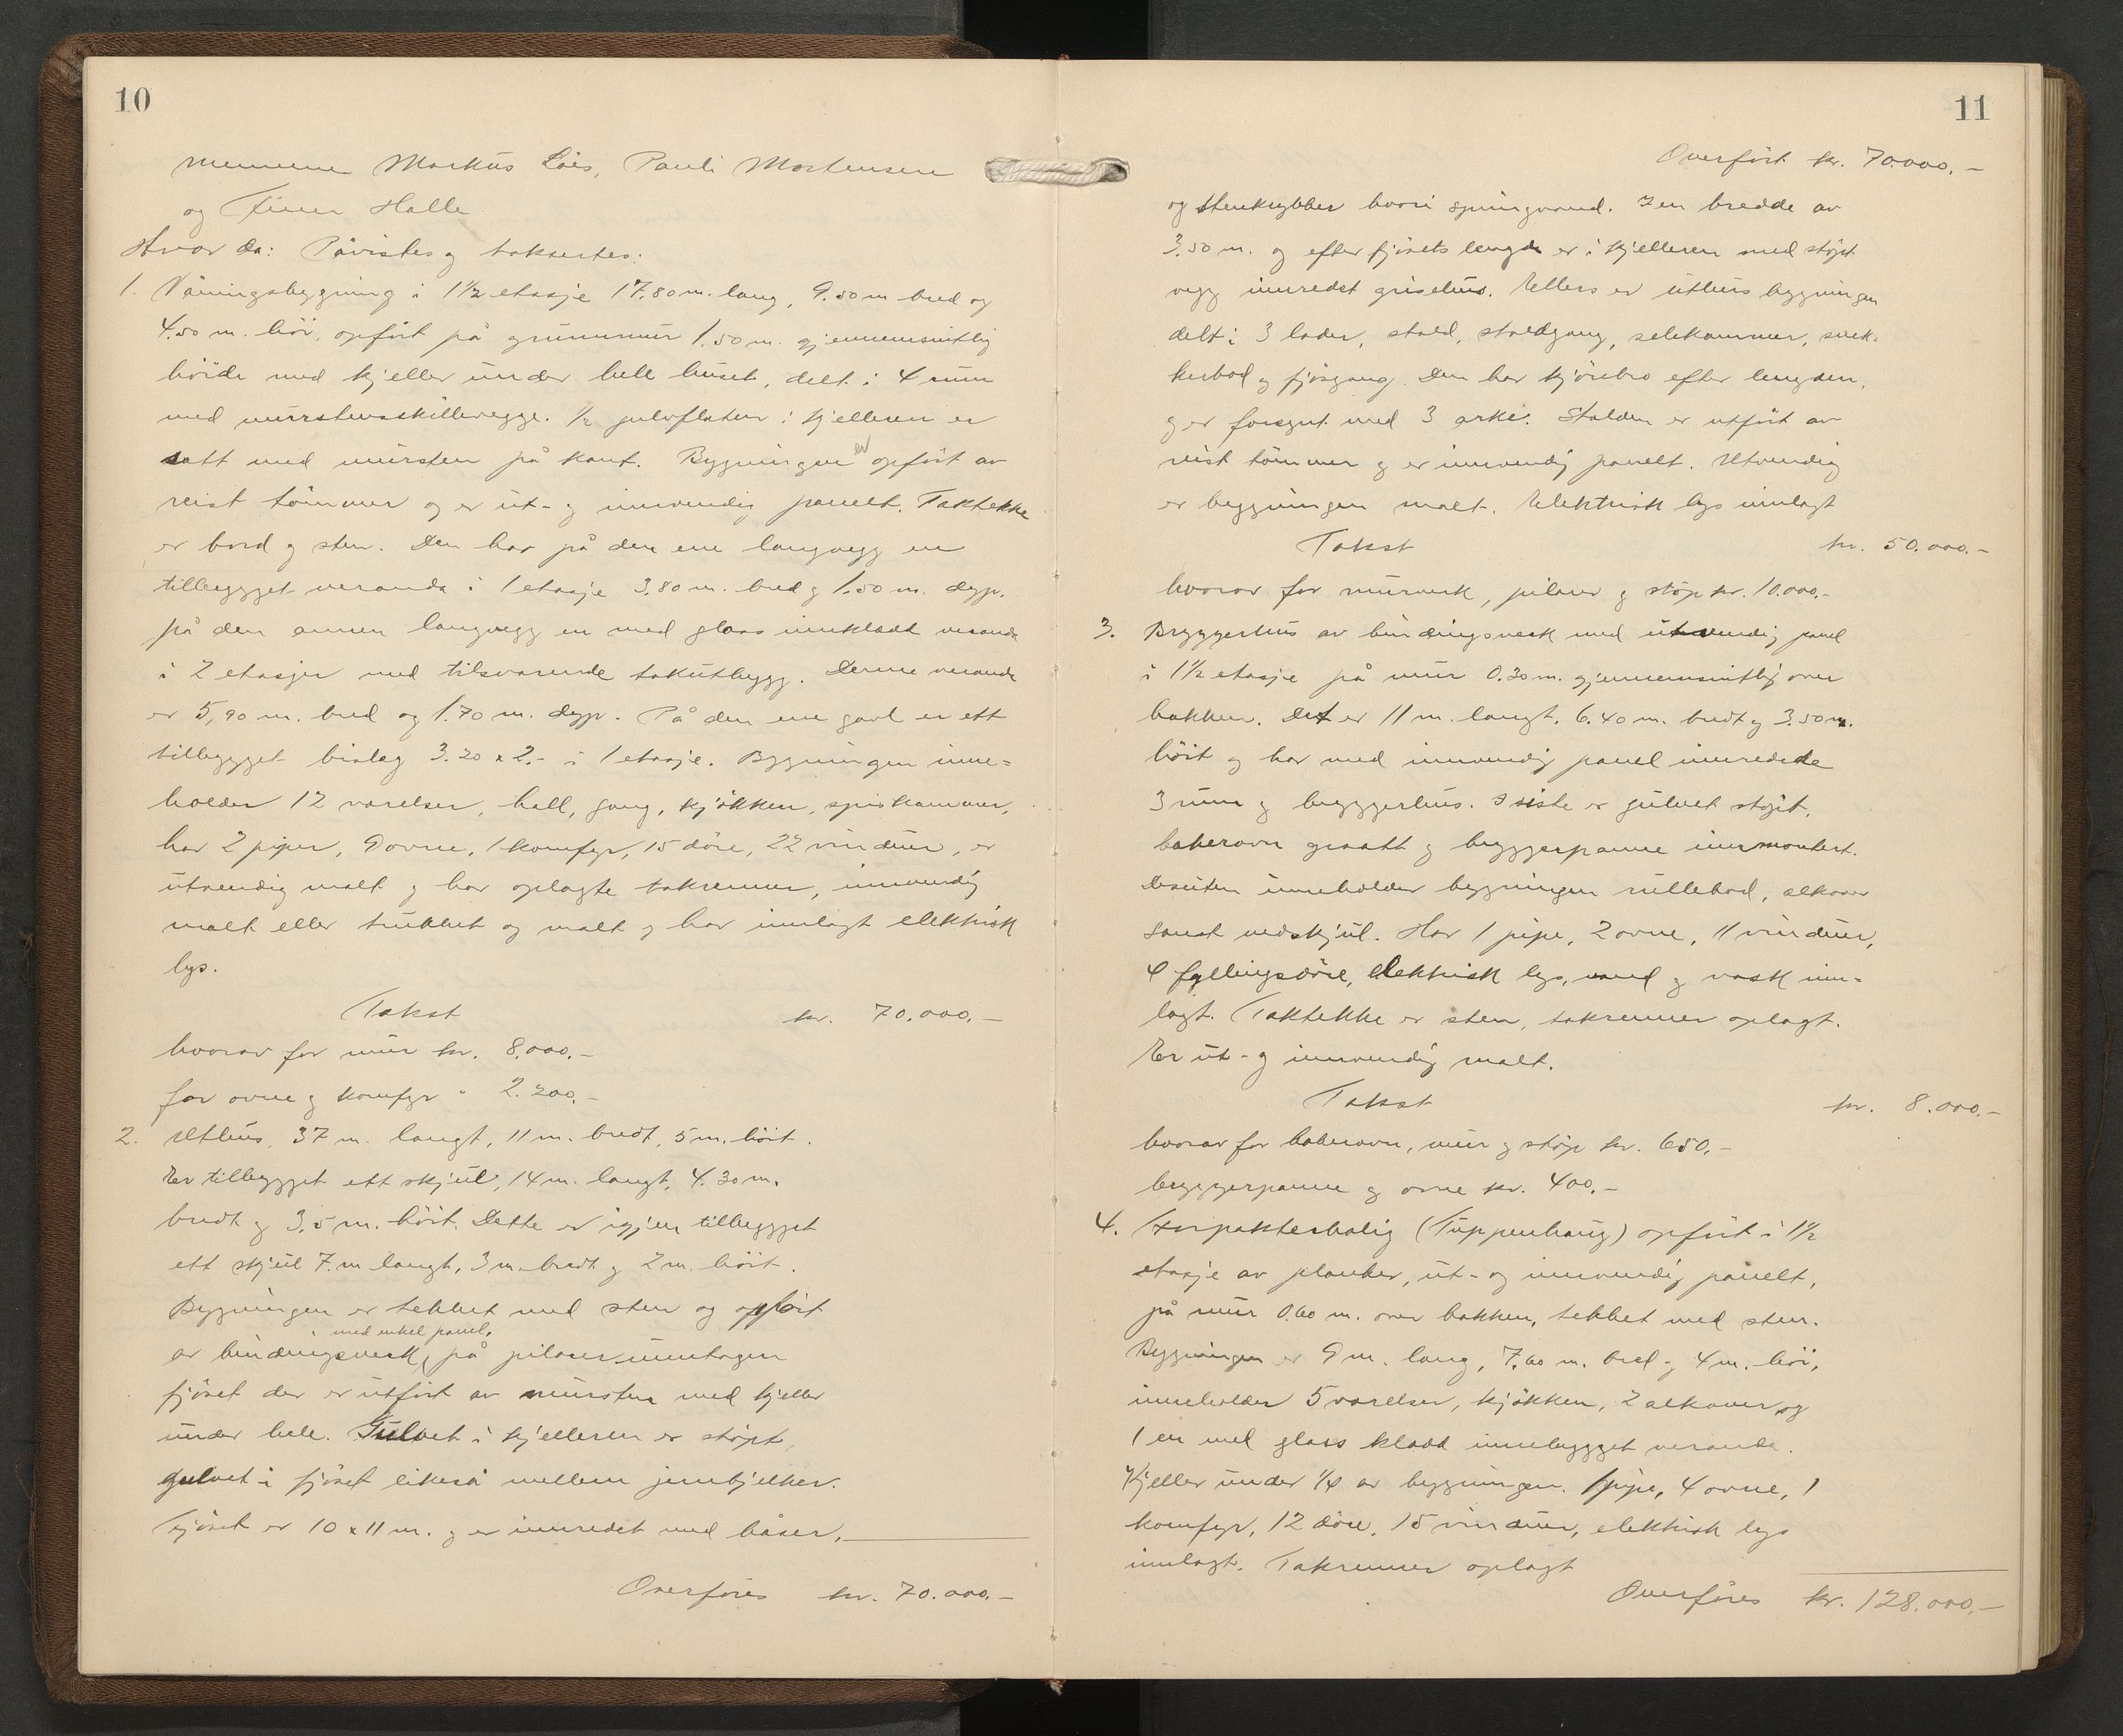 10
mennene Markus Löes, Pauli Mortensen
og Finn Halle
Hvor da: Påvistes og taksertes:
1. Våningsbygning i 1½ etasje 17.80 m. lang, 9.50 m bred og
4.50 m. höi, opfört på grunnmur 1.50 m. gjennemsnitlig
höide med kjeller under hele huset, delt i 4 rum
med murstensskillevegge. ½ gulvflaten i kjelleren er
satt med mursten på kant. Bygningen er opfört av
reist tömmer og er ut- og innvendig panelt. Taktekke
er bord og sten. Den har på den ene langvegg en
tilbygget veranda i 1 etasje 3,80 m. bred og 1.50 m. dyp.
på den annen langvegg en med glass innkladt veranda
i 2 etasjer med tilsvarende takutbygg. Denne veranda
er 5,90 m. bred og 1.70 m. dyp. På den ene gavl er ett
tilbygget bislag 3.20 x 2.- i 1 etasje. Bygningen inne=
holder 12 værelser, hall, gang, kjökken, spiskammer,
har 2 piper, 9 ovne, 1 komfyr, 15 döre, 22 vinduer, er
utvendig malt og har oplagte takrenner, innvendig
malt eller trukket og malt og har innlagt elektrisk
lys.
Takst kr. 70.000.-
hvorav for mur kr. 8.000.-
for ovne og komfyr " 2.200.-
2. Uthus, 37 m. langt, 11 m. bredt, 5 m. höit.
Er tilbygget ett skjul, 14 m. langt, 4.30 m.
bredt og 3,5 m. höit. Dette er igjen tilbygget
ett skjul 7. m langt, 3 m. bredt og 2 m. höit.
Bygningen er tekket med sten og opfört
med enkel panel,
av bindingsverk, på pilarer unntagen
fjöset der er utfört av mursten med kjeller
under hele. Gulvet i kjelleren er stöpt,
gulvet i fjöset likeså mellem jernbjelker.
Fjöset er 10 x 11 m. og er innredet med båser,
Overföres kr. 70.000.-
11
Overfört kr. 70.000.-
og stenkrybber hvori springvand. I en bredde av
3.50 m. og efter fjösets lengde er i kjelleren med stöpt
vegg innredet grisehus. Ellers er uthusbygningen
delt i 3 lader, stald, staldgang, selekammer, snek-
kerbod og fjösgang. Den har kjörebro efter lengden,
og er forsynt med 3 arke. Stalden er utfört av
reist tömmer og er innvendig panelt. Utvendig
er bygningen malt. Elektrisk lys innlagt
Takst kr. 50.000.-
hvorav for murverk, pilarer og stöp kr. 10.000.-
3. Bryggerhus av bindingsverk med utvendig panel
i 1½ etasje på mur 0.30 m. gjennemsnitlig over
bakken. Det er 11 m. langt, 6.40 m. bredt og 3.50 m.
höit og har med innvendig panel innredede
3 rum og bryggerhus. I siste er gulvet stöpt,
bakerovn gsatt og bryggerpanne innmontert.
Desuten inneholder bygningen rullebod, alkover
samt vedskjul. Har 1 pipe, 2 ovne, 11 vinduer,
4 fyllingsdöre, elektrisk lys, vand og vask inn-
lagt. Taktekke er sten, takrenner oplagt.
Er ut- og innvendig malt.
Takst kr. 8.000.-
hvorav for bakerovn, mur og stöp kr. 650.-
bryggerpanne og ovne kr. 400.-
4. Forpakterbolig (Tuppenhaug) opfört i 1½
etasje av planker, ut- og innvendig panelt,
på mur 0.60 m. over bakken, tekket med sten.
Bygningen er 9 m. lang, 7.60 m. bred og 4 m. höi,
inneholder 5 værelser, kjökken, 2 alkover og
1 en med glass kladd innebygget veranda.
Kjeller under ¼ av bygningen. 1 pipe, 4 ovne, 1
komfyr, 12 döre, 15 vinduer, elektrisk lys
innlagt. Takrenner oplagt
Overföres kr. 128.000.-